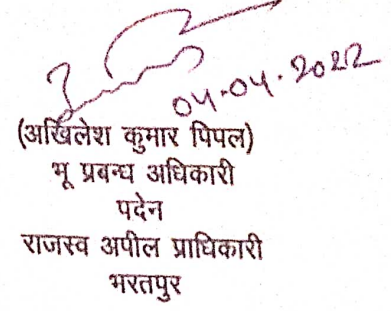 04-04-2022
(अखिलेश कुमार पिपल)
भू प्रबन्ध अधिकारी
पदेन
राजस्व अपील प्राधिकारी
भरतपुर